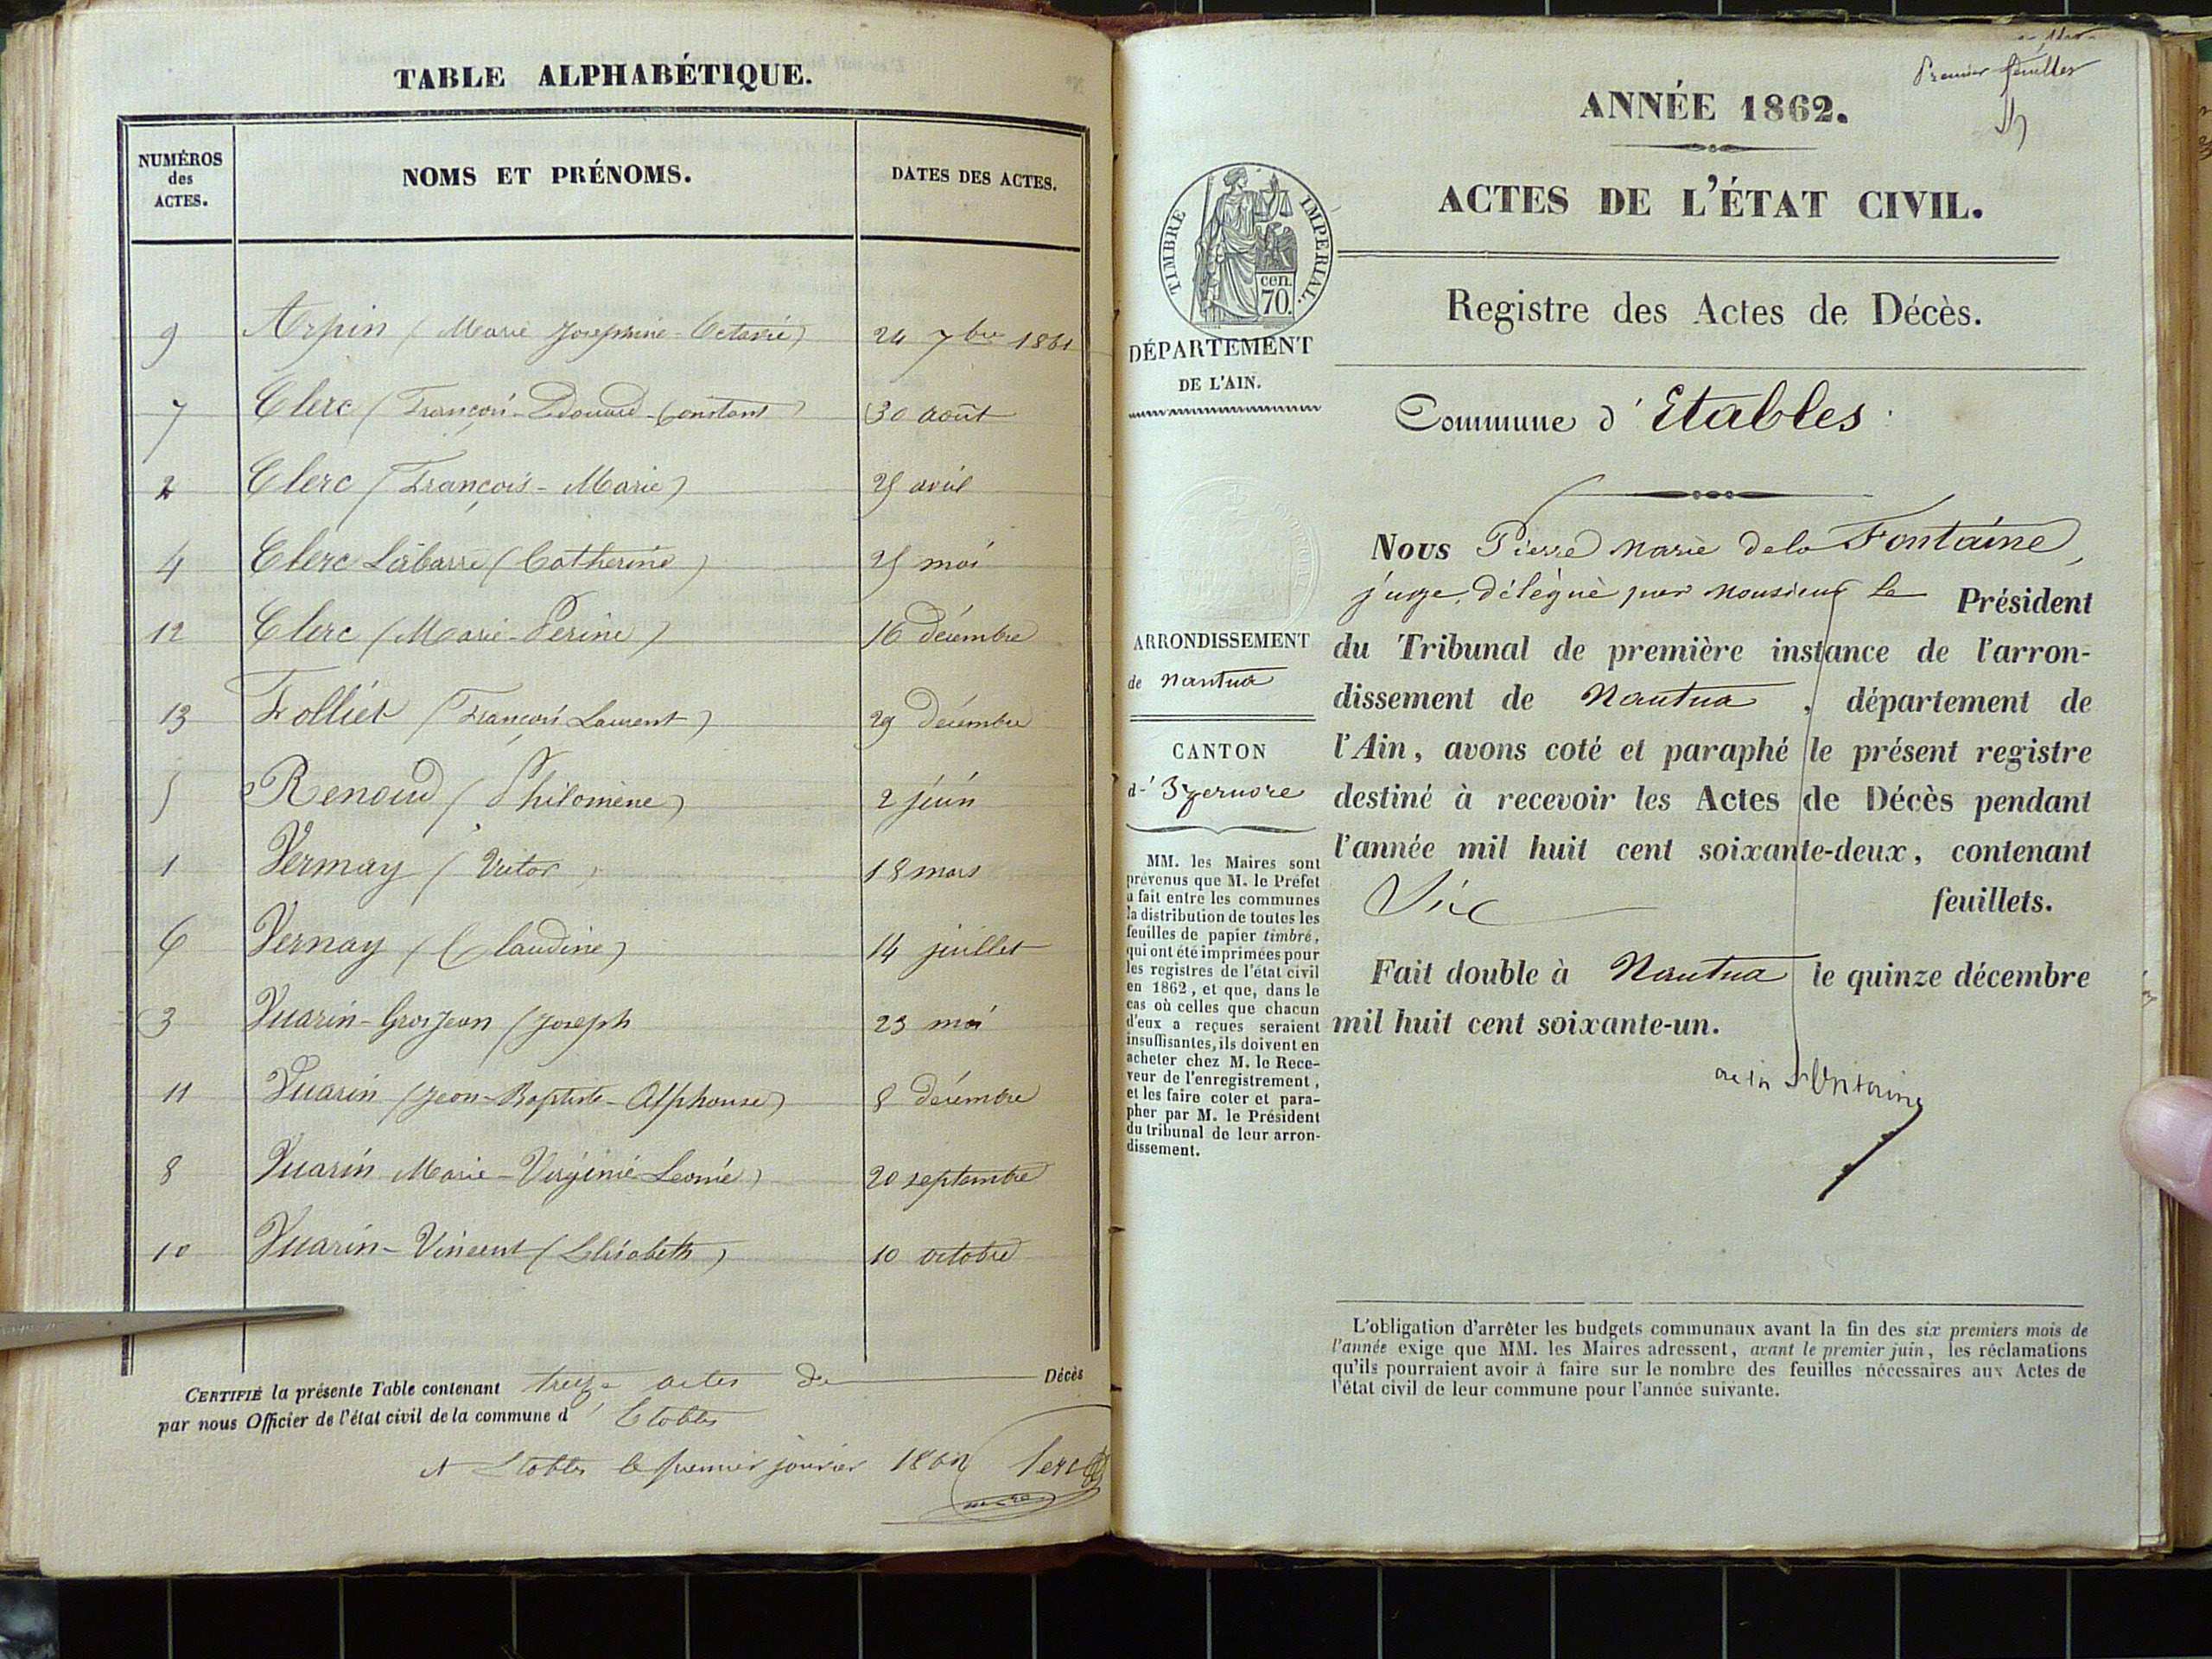 TABLE ALPHABÉTIQUE.
NUMÉROS des ACTES. NOMS ET PRÉNOMS. DATES DES ACTES.
9 Arpin (Marie Joséphine-Octavie) 24 7bre 1861
7 Clerc (François-Edouard-Constant) 30 août
2 Clerc (François-Marie) 25 avril
4 Clerc Labarre (Catherine) 25 mai
12 Clerc (Marie-Perine) 16 décembre
13 Folliet (François Laurent) 29 décembre
5 Renoud (Philomène) 2 juin
1 Vermay (Victor) 18 mars
6 Vernay (Claudine) 14 juillet
3 Vuarin-Grosjean (Joseph 23 mai
11 Vuarin (Jean-Baptiste-Alphonse) 8 décembre
8 Vuarin Marie-Virginie-Leonie) 20 septembre
10 Vuarin-Vincent (Elisabeth) 10 octobre
CERTIFIÉ la présente Table contenant treize actes de Décès
par nous Officier de l'état civil de la commune d'Etables
A Etables le premier janvier 1862 Clerc
Premier feuillet
ANNÉE 1862.
ACTES DE L'ÉTAT CIVIL.
TIMBRE IMPERIAL.
cen.
70.
Registre des Actes de Décès.
DÉPARTEMENT
DE L'AIN.
Commune d'Etables
Nous Pierre Marie dela Fontaine,
juge délégué par Monsieur le Président
du Tribunal de première instance de l'arron-
dissement de Nantua, département de
l'Ain, avons coté et paraphé le présent registre
destiné à recevoir les Actes de Décès pendant
l'année mil huit cent soixante-deux, contenant
Six feuillets.
Fait double à Nantua le quinze décembre
mil huit cent soixante-un.
de la Fontaine
ARRONDISSEMENT
de Nantua
CANTON
d'Izernore
MM. les Maires sont
prévenus que M. le Préfet
a fait entre les communes
la distribution de toutes les
feuilles de papier timbré,
qui ont été imprimées pour
les registres de l'état civil
en 1862, et que, dans le
cas où celles que chacun
d'eux a reçues seraient
insuffisantes, ils doivent en
acheter chez M. le Rece-
veur de l'enregistrement,
et les faire coter et para-
pher par M. le Président
du tribunal de leur arron-
dissement.
L'obligation d'arrêter les budgets communaux avant la fin des six premiers mois de
l'année exige que MM. les Maires adressent, avant le premier juin, les réclamations
qu'ils pourraient avoir à faire sur le nombre des feuilles nécessaires aux Actes de
l'état civil de leur commune pour l'année suivante.